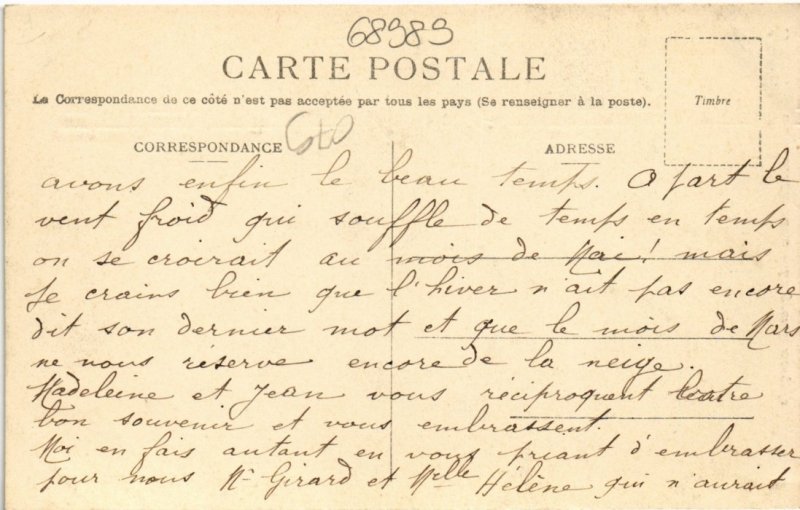 68989
CARTE POSTALE
La Correspondance de ce côté n'est pas acceptée par tous les pays (Se renseigner à la poste).
Timbre
CORRESPONDANCE
ADRESSE
avons enfin le beau temps. A part le
vent froid qui souffle de temps en temps
on se croirait au mois de Mai! mais
je crains bien que l'hiver n'ait pas encore
dit son dernier mot et que le mois de Mars
ne nous réserve encore de la neige.
Madeleine et Jean vous réciproquent votre
bon souvenir et vous embrassent.
Moi en fais autant en vous priant d'embrasser
pour nous Mr Girard et Melle Hélène qui n'aurait